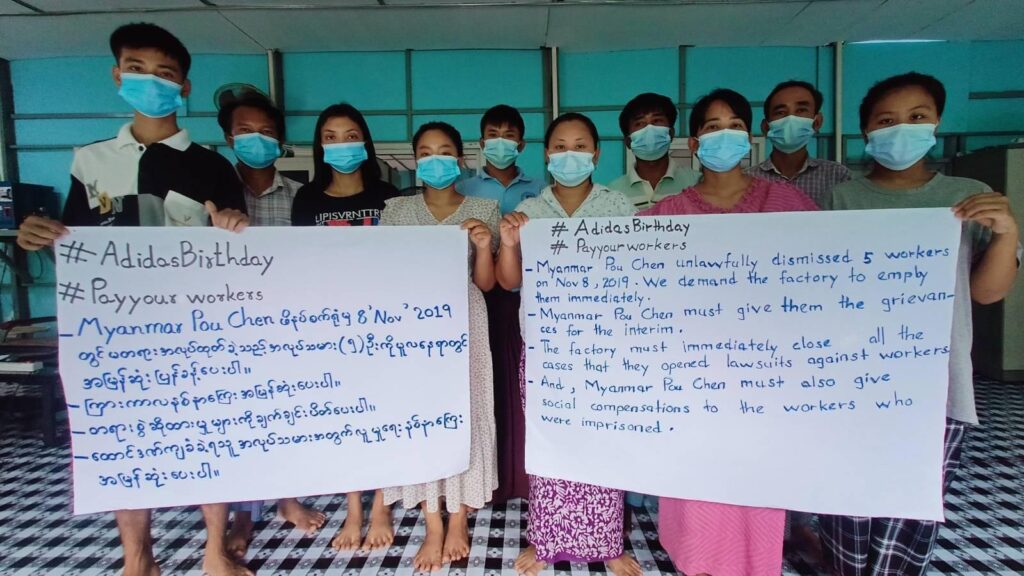 LIPISVRNTTR
# AdidasBirthday
# Payyour workers
- Myanmar Pou Chen ဖိနပ်စက်ရုံမှ 8'Nov' 2019
တွင် မတရားအလုပ်ထုတ်ခဲ့သည့် အလုပ်သမား(၅)ဦးကို မူလနေရာတွင်
အမြန်ဆုံး ပြန်ခန့်ပေးပါ။
- ကြားကာလနစ်နာကြေး အမြန်ဆုံးပေးပါ။
- တရားစွဲဆိုထားမှုများကို ချက်ချင်းပိတ်ပေးပါ။
- ထောင်ဒဏ်ကျခံခဲ့ရသူ အလုပ်သမားအတွက် လူမှုရေးနစ်နာကြေး
အမြန်ဆုံးပေးပါ။
# AdidasBirthday
# Payyourworkers
- Myanmar Pou Chen unlawfully dismissed 5 workers
on Nov 8, 2019. We demand the factory to emply
them immediately.
- Myanmar Pou Chen must give them the grievan-
ces for the interim.
- The factory must immediately close all the
cases that they opened lawsuits against workers
- And, Myanmar Pou Chen must also give
social compensations to the workers who
were imprisoned.